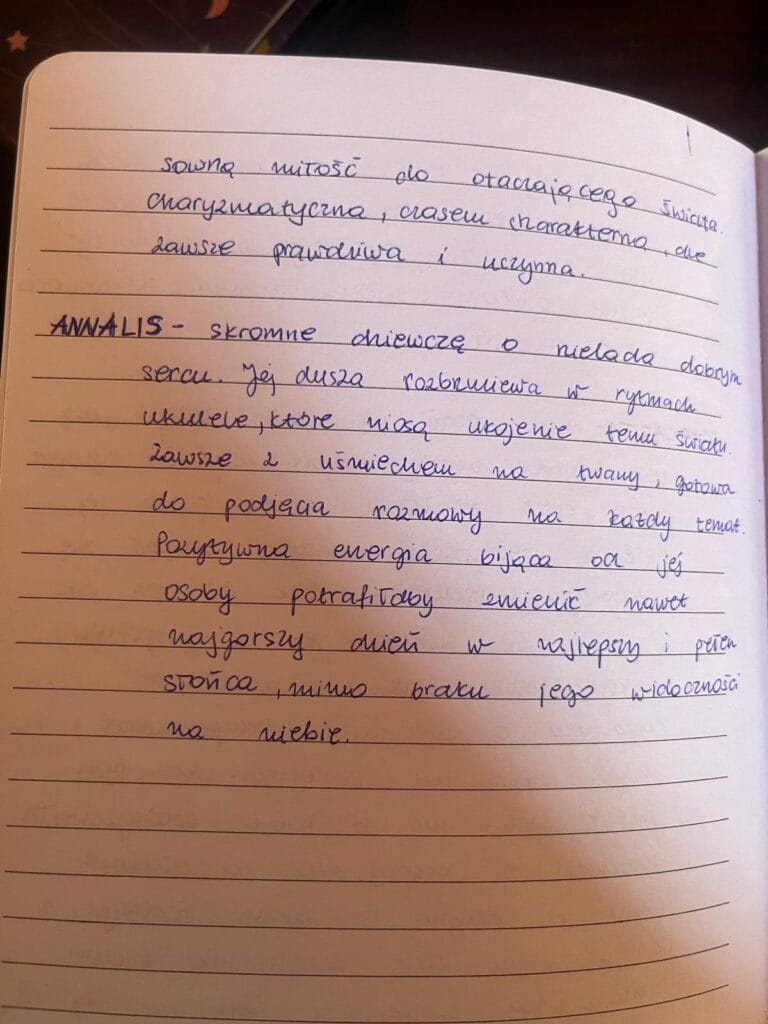 sowną miłość do otaczającego świata.
Charyzmatyczna, czasem charakterna, ale
zawsze prawdziwa i uczynna.
ANNÁLIS - skromne dziewczę o nielada dobrym
sercu. Jej dusza rozbrzmiewa w rytmach
ukulele, które niosą ukojenie temu światu.
Zawsze z uśmiechem na twarzy, gotowa
do podjęcia rozmowy na każdy temat.
Pozytywna energia bijąca od jej
osoby potrafiłaby zmienić nawet
najgorszy dzień w najlepszy i pełen
słońca, mimo braku jego widoczności
na niebie.